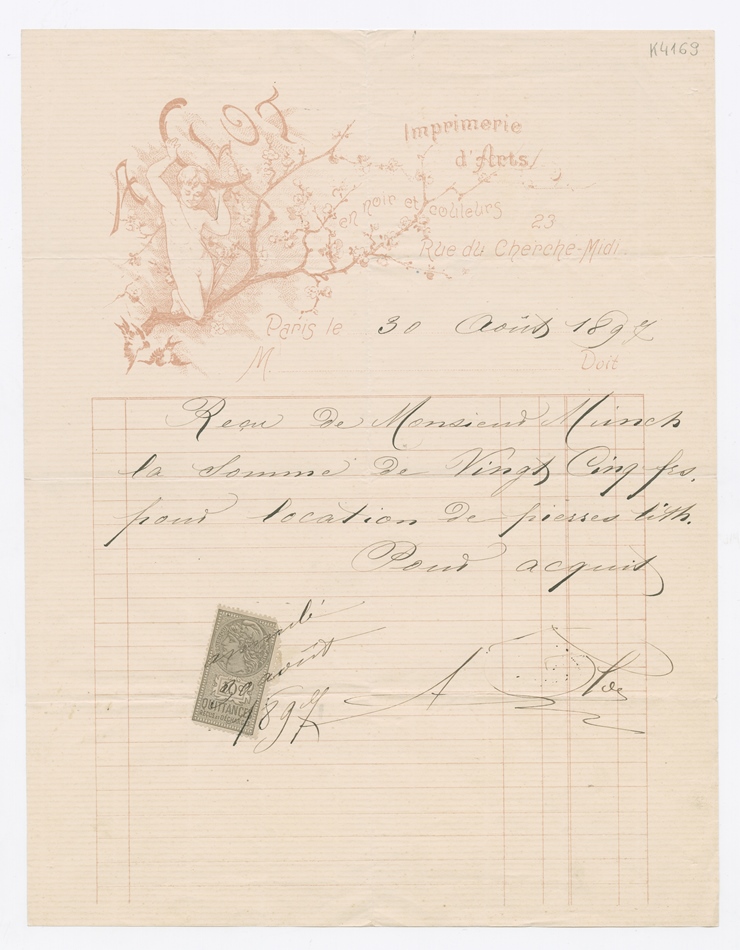 K4169
A CLOT
Imprimerie
d'Arts
en noir et couleurs
23
Rue du Cherche-Midi
Paris le 30 Août 1897
M. Doit
Reçu de Monsieur Munch
la Somme de Vingt Cinq frs.
pour location de pierres lith.
Pour acquit
août
1897
QUITTANCES
A Clot